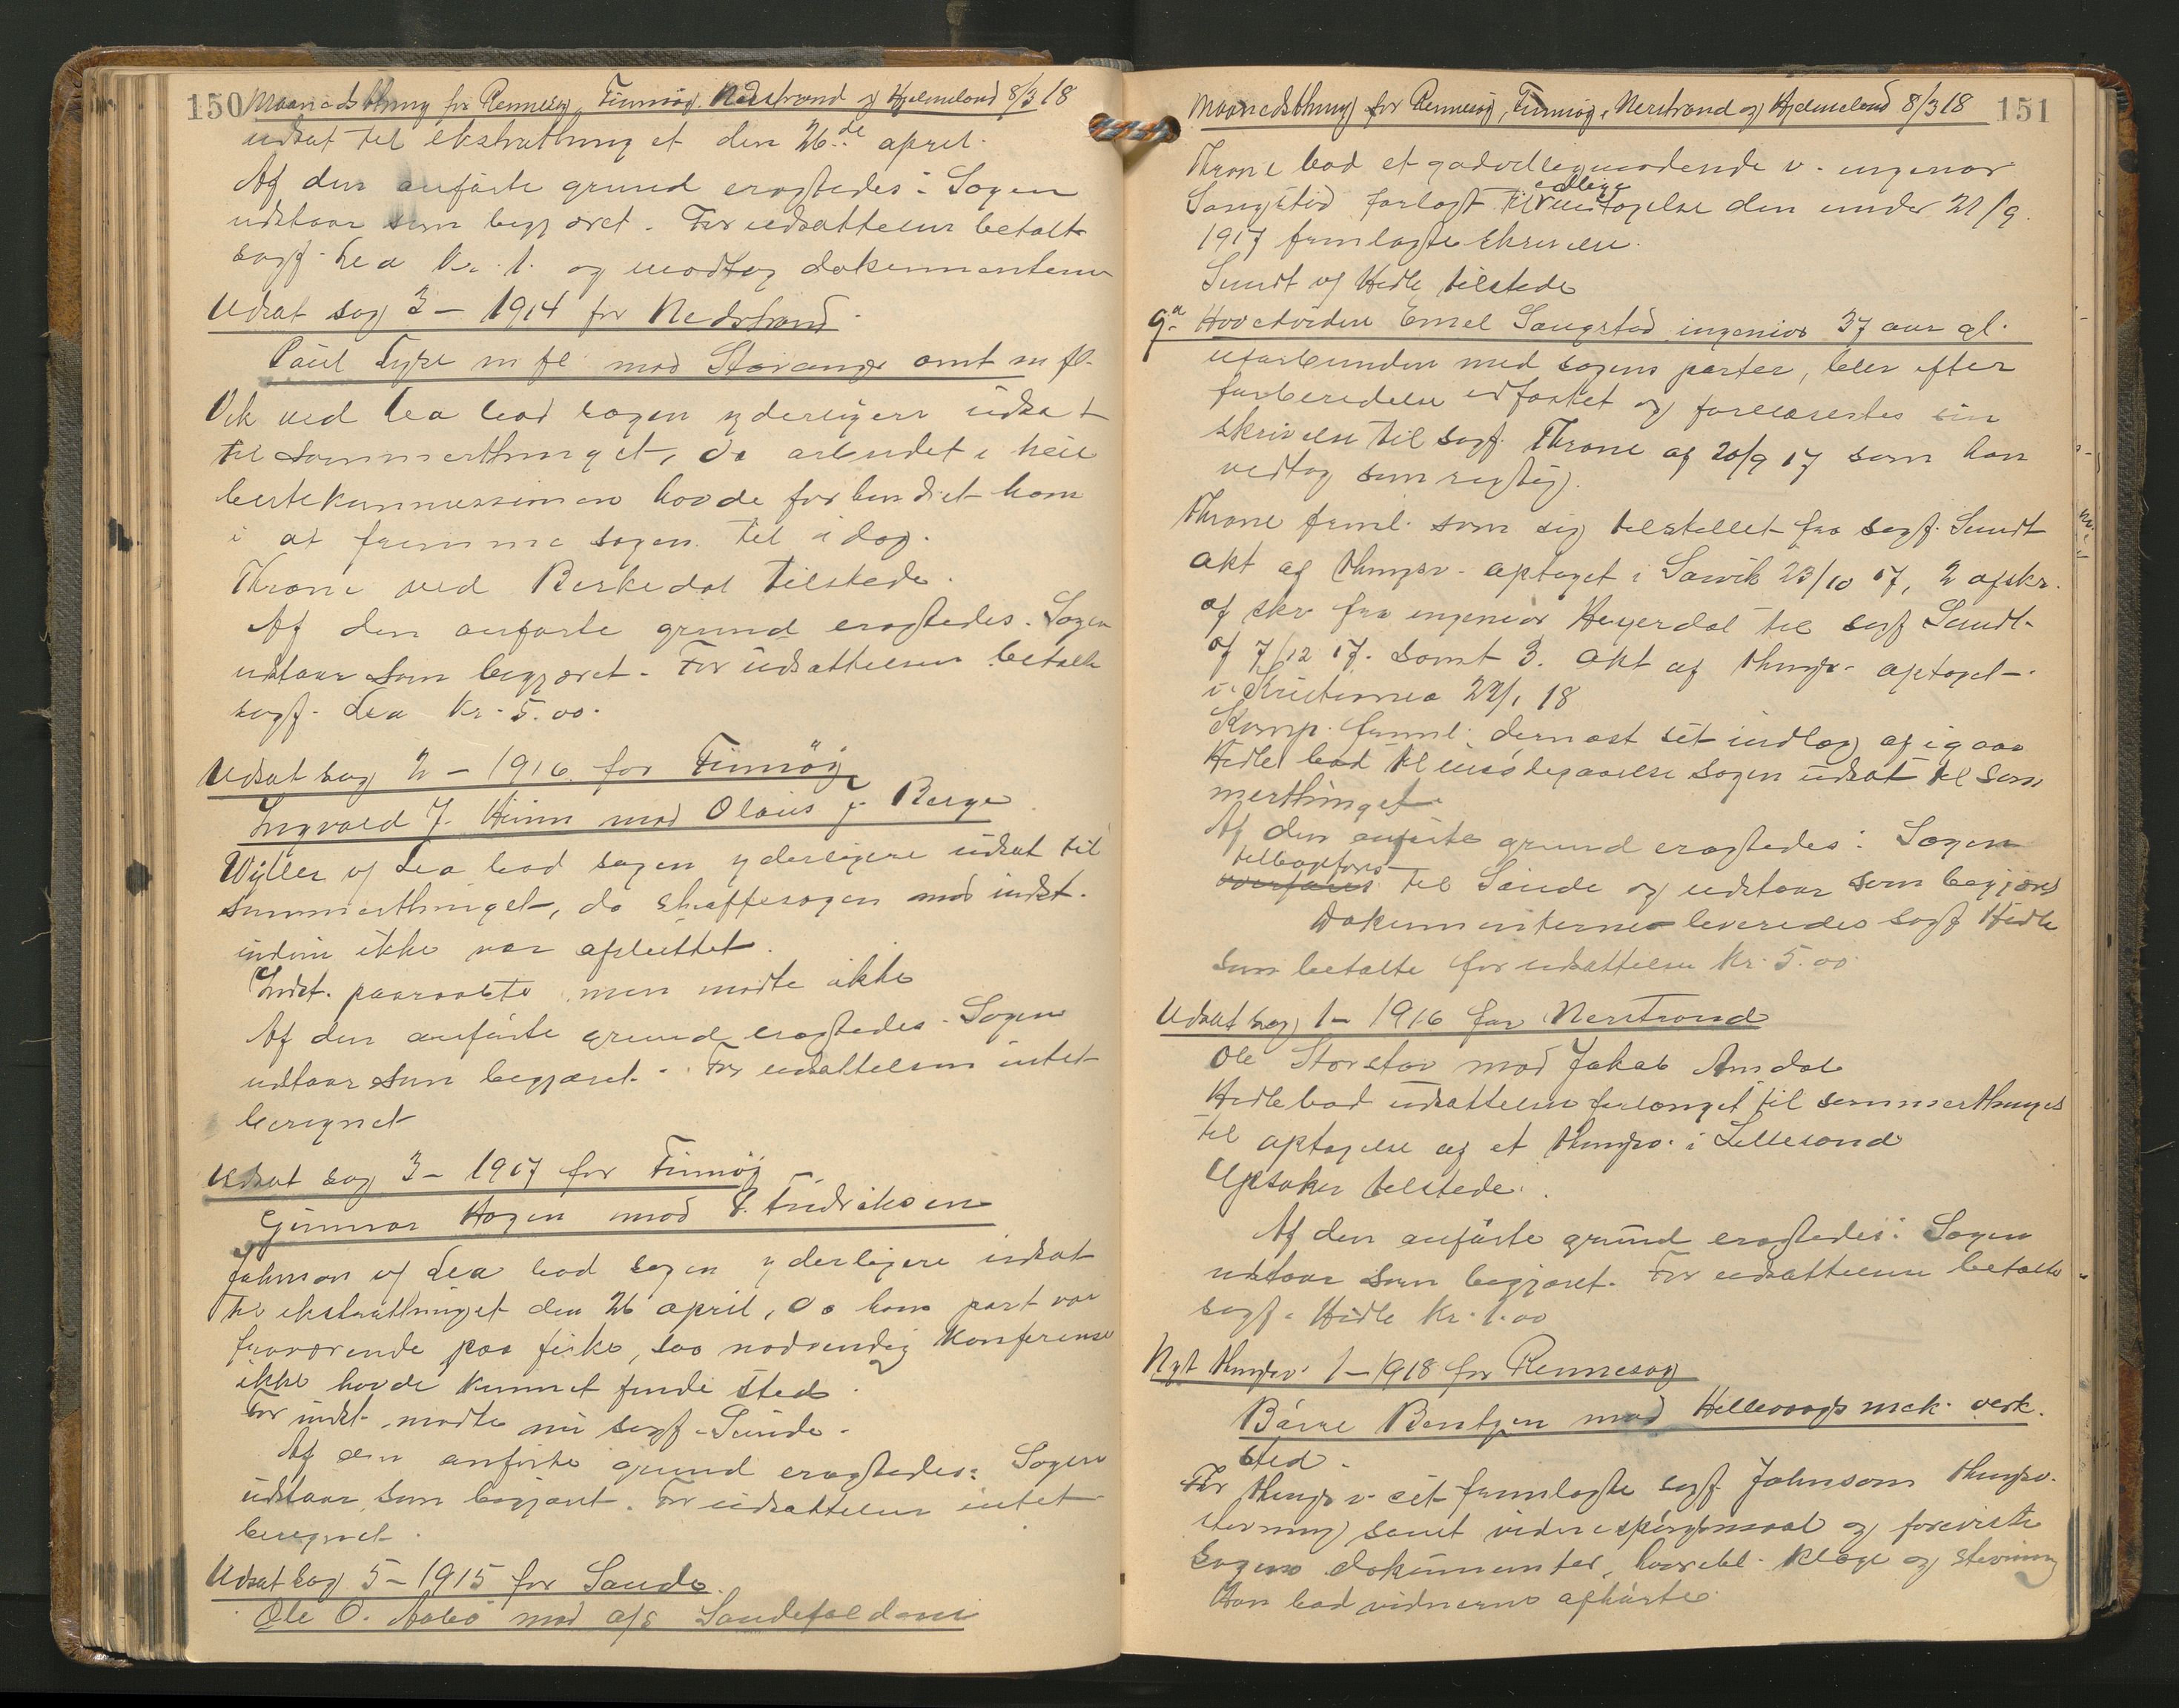 150 Maanedsthing for Rennesøy, Finnøy, Nedstrand og Hjelmeland 8/3 18
udsat til ekstrathinget den 26de april.
Af den anførte grund eragtedes: Sagen
udstaar som begjæret. For udsættelsen betalte
sagf. Lea kr. 1. og modtog dokumenterne
Udsat sag 3 – 1914 for Nedstrand
Paul Lyse m fl mod Stavanger amt m fl.
Vik ved Lea bad sagen yderligere udsat
til sommerthinget, da arbeidet i
havde forhindret ham
i at fremme sagen til idag.
Thrane ved Birkedal tilstede.
Af den anførte grund eragtedes. Sagen
udstaar som begjæret. For udsættelsen betalte
sagf. Lea Kr. 5.00.
Udsat sag 2 – 1916 for Finnøy
Ingvald J. mod Olaus J. Berge
Wyller v/ Lea bad sagen yderligere udsat til
sommerthinget, da straffesagen mod indst.
endnu ikke var afsluttet.
Indst. paaraabte men mødte ikke
Af den anførte grund eragtedes. Sagen
udstaar som begjæret. For udsættelsen intet
beregnet
Udsat sag 3 – 1917 for Finnøy
Gunnar Hagen mod P. Fredriksen
Johnson v/ Lea bad sagen yderligere udsat
til ekstrathinget den 26 april, da hans part var
fraværende paa fiske, saa nødvendig konferense
ikke havde kunnet finde sted.
For indst. mødte nu sagf. Sunde.
Af den anførte grund eragtedes: Sagen
udstaar som begjæret. For udsættelsen intet
beregnet.
Udsat sag 5 – 1915 for Sauda.
Ole O. Aabø mod a/s Saudefaldene
Maanedsthing for Rennesøy, Finnøy, Nerstrand og Hjelmeland 8/3 18 151
Thrane bad et godvilligmødende v. ingeniør
Sangstad forlagt til edlig vedtagelse den under 21/9
1917 fremlagte skrivelse.
Sundt v/ Hidle tilstede
9de Hovedvidne Emil Sangstad ingeniør 37 aar gl.
uforbunden med sagens parter, blev efter
forberedelse edfæstet og forelæstes sin
skrivelse til sagf. Thrane af 20/9 17 som han
vedtog som rigtig.
Thrane freml. som sig tilstillet fra sagf. Sundt
akt af thingsv. optaget i Larvik 23/10 17, 2 afskr.
af skr. fra ingeniør Heyerdal til sagf Sundt
af 7/12 17. samt 3. akt af thingsv. optaget
i Kristiania 22/1 18
Komp. freml. dernæst sit indlæg af igaar
Hidle bad til imødegaaelse sagen udsat til som
merthinget.
Af den anførte grund eragtedes: Sagen
tilbageføres
overføres til Saude og udstaar som begjæret
Dokumenterne leveredes sagf Hidle
som betalte for udsættelsen Kr. 5.00.
Udsat sag 1 – 1916 for Nerstrand
Ole Storstøv mod Jakob Amdal
Hidle bad udsættelsen forlænget til sommerthinget
til optagelse af et thingsv. i Lillesand
Opsaker tilstede.
Af den anførte grund eragtedes: Sagen
udstaar som begjæret. For udsættelsen betalte
sagf. Hidle Kr. 1.00
Nyt thingsv. 1 – 1918 for Rennesøy
Børre Bentzen mod Hillevaags mek. verk.
sted.
For thingsv. cit. fremlagte sagf. Johnson thingsv.
stevning samt vidnespørgsmaal og foreviste
sagens dokumenter, hvoribl. klage og stevning
Han bad vidnerne afhørte